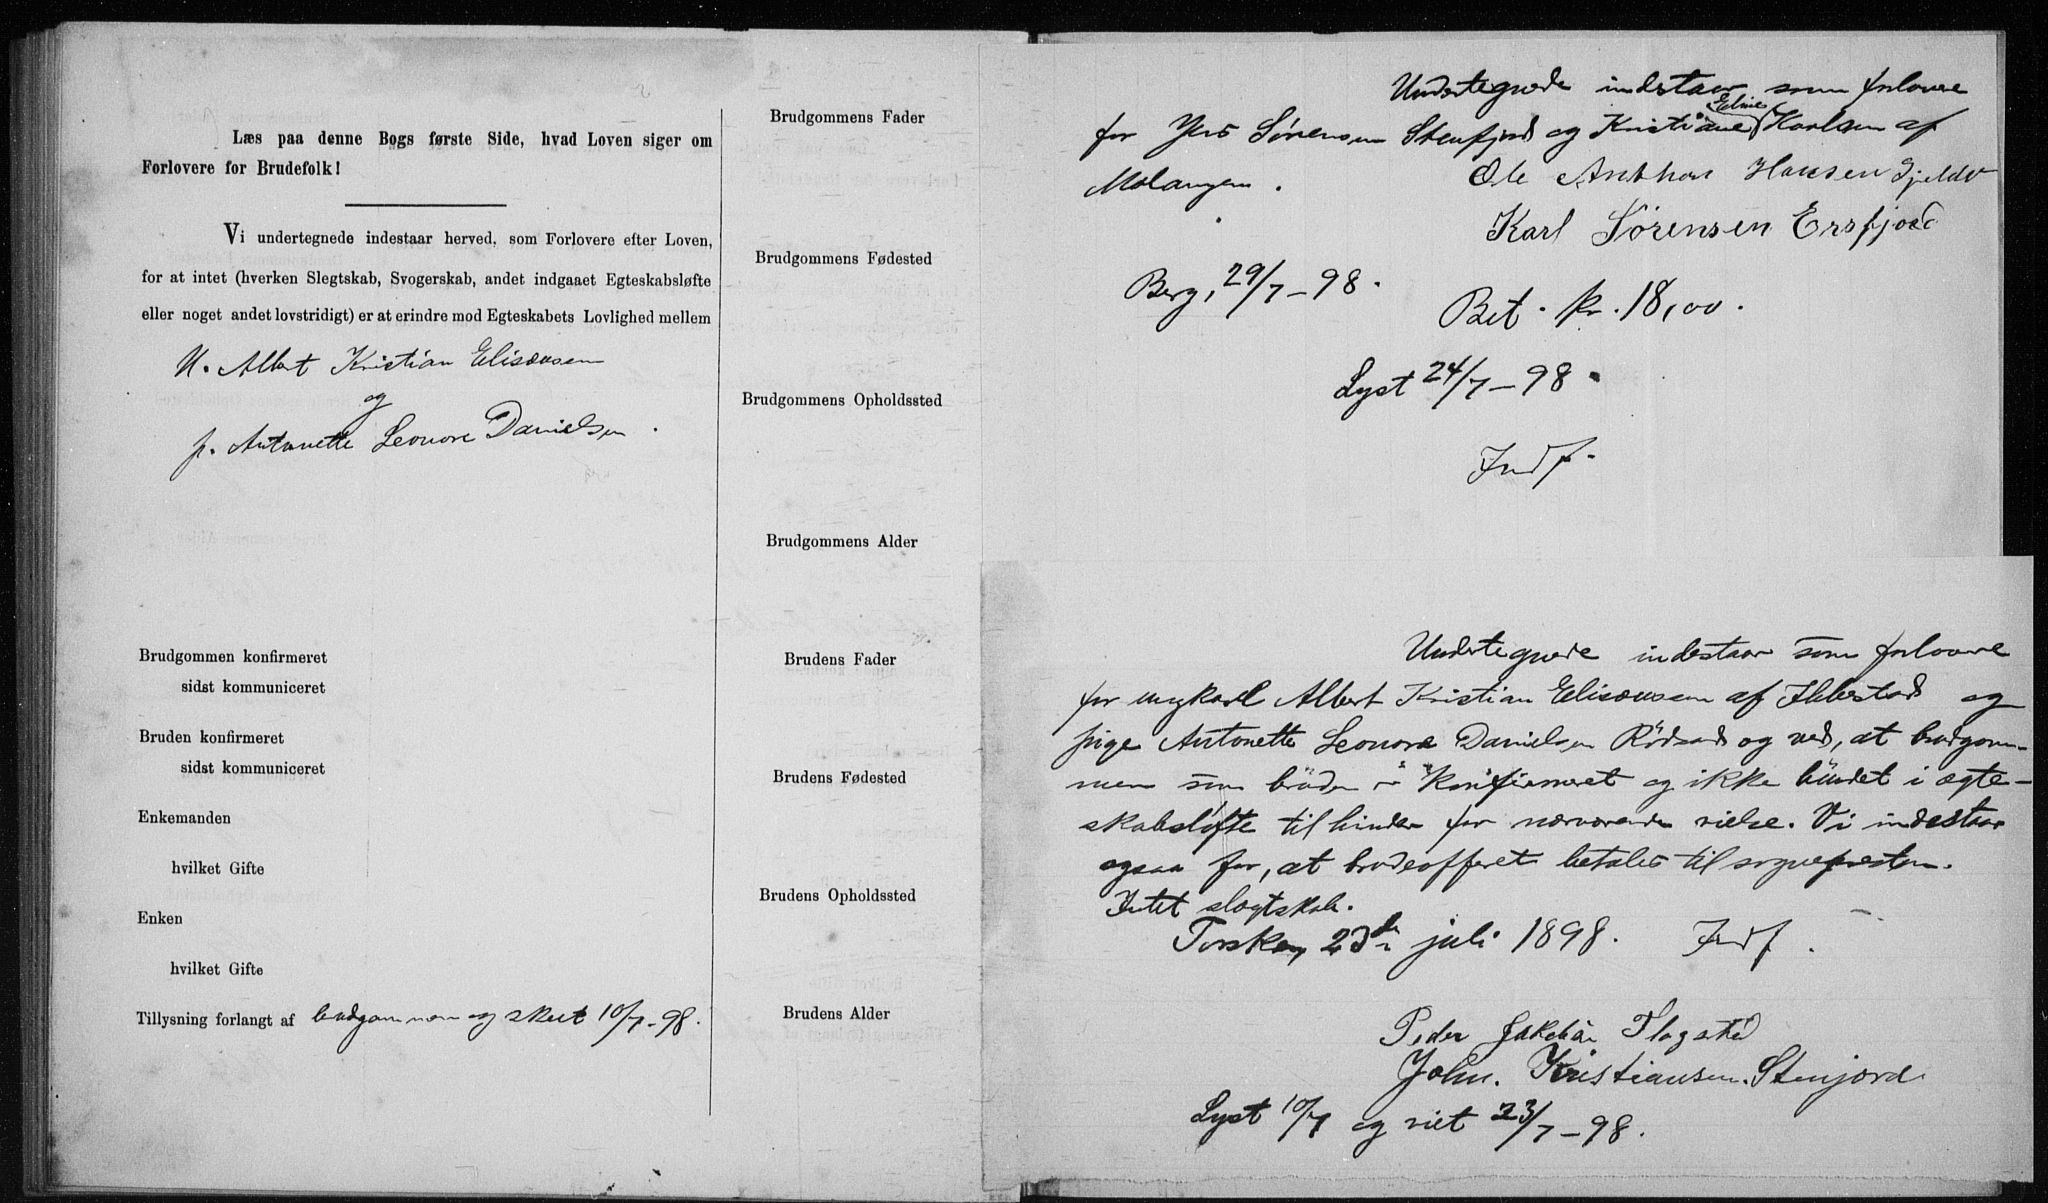 Læs paa denne Bogs første Side, hvad Loven siger om
Forlovere for Brudefolk!
Vi undertegnede indestaar herved, som Forlovere efter Loven,
for at intet (hverken Slegtskab, Svogerskab, andet indgaaet Egteskabsløfte
eller noget andet lovstridigt) er at erindre mod Egteskabets Lovlighed mellem
U. Albert Kristian Elisæusen
og
p. Antonette Leonore Danielsen.
Brudgommen konfirmeret
sidst kommuniceret
Bruden konfirmeret
sidst kommuniceret
Enkemanden
hvilket Gifte
Enken
hvilket Gifte
Tillysning forlangt af brudgommen og skeet 10/7-98.
Brudgommens Fader
Brudgommens Fødested
Brudgommens Opholdssted
Brudgommens Alder
Brudens Fader
Brudens Fødested
Brudens Opholdssted
Brudens Alder
Undertegnede indestaar som forlovere
for Jens Sørensen Stenfjord og Kristiane Eline Karlsen af
Malangen.
Ole Anthon Hansen
Karl Sørensen Ersfjord
Berg, 29/7-98.
Bet. kr. 18,00.
Lyst 24/7-98.
Indf.
Undertegnede indestaar som forlovere
for ungkarl Albert Kristian Elisæusen af Ibbestad og
pige Antonette Leonore Danielsen Rödsand og ved, at brudgom-
men som bruden er konfirmeret og ikke bundet i ægte-
skabsløfte til hinder for nærværende vielse. Vi indestaar
ogsaa for, at brudeofferet betales til sognepresten.
Intet slægtskab.
Torsken, 23de juli 1898. Indf.
Peder Jakobsen Flagstad
John. Kristiansen. Stenjord
Lyst 10/7 og viet 23/7-98.